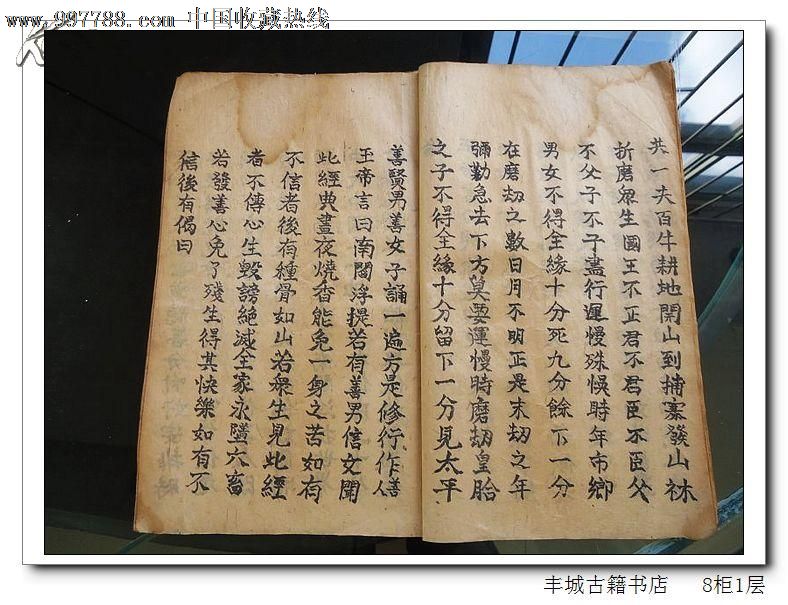 www.997788.com 中国收藏热线
共一夫百牛耕地開山到捕寨發山林
折磨衆生國王不正君不君臣不臣父
不父子不子盡行遲慢殊悞時年市鄉
男女不得全緣十分死九分餘下一分
在磨刼之數日月不明正是末刼之年
彌勤急去下方莫要運慢時磨刼皇胎
之子不得全緣十分留下一分見太平
善賢男善女子誦一遍方是修行作善人
王帝言曰南閻浮提若有善男信文聞
此經典晝夜燒香能免一身之苦如有
不信者後有種骨如山若衆生見此經
者不傳心生毀謗絕滅全家永墮六畜
若發善心免了殘生得其快樂如有不
信後有偈曰
丰城古籍书店 8柜1层